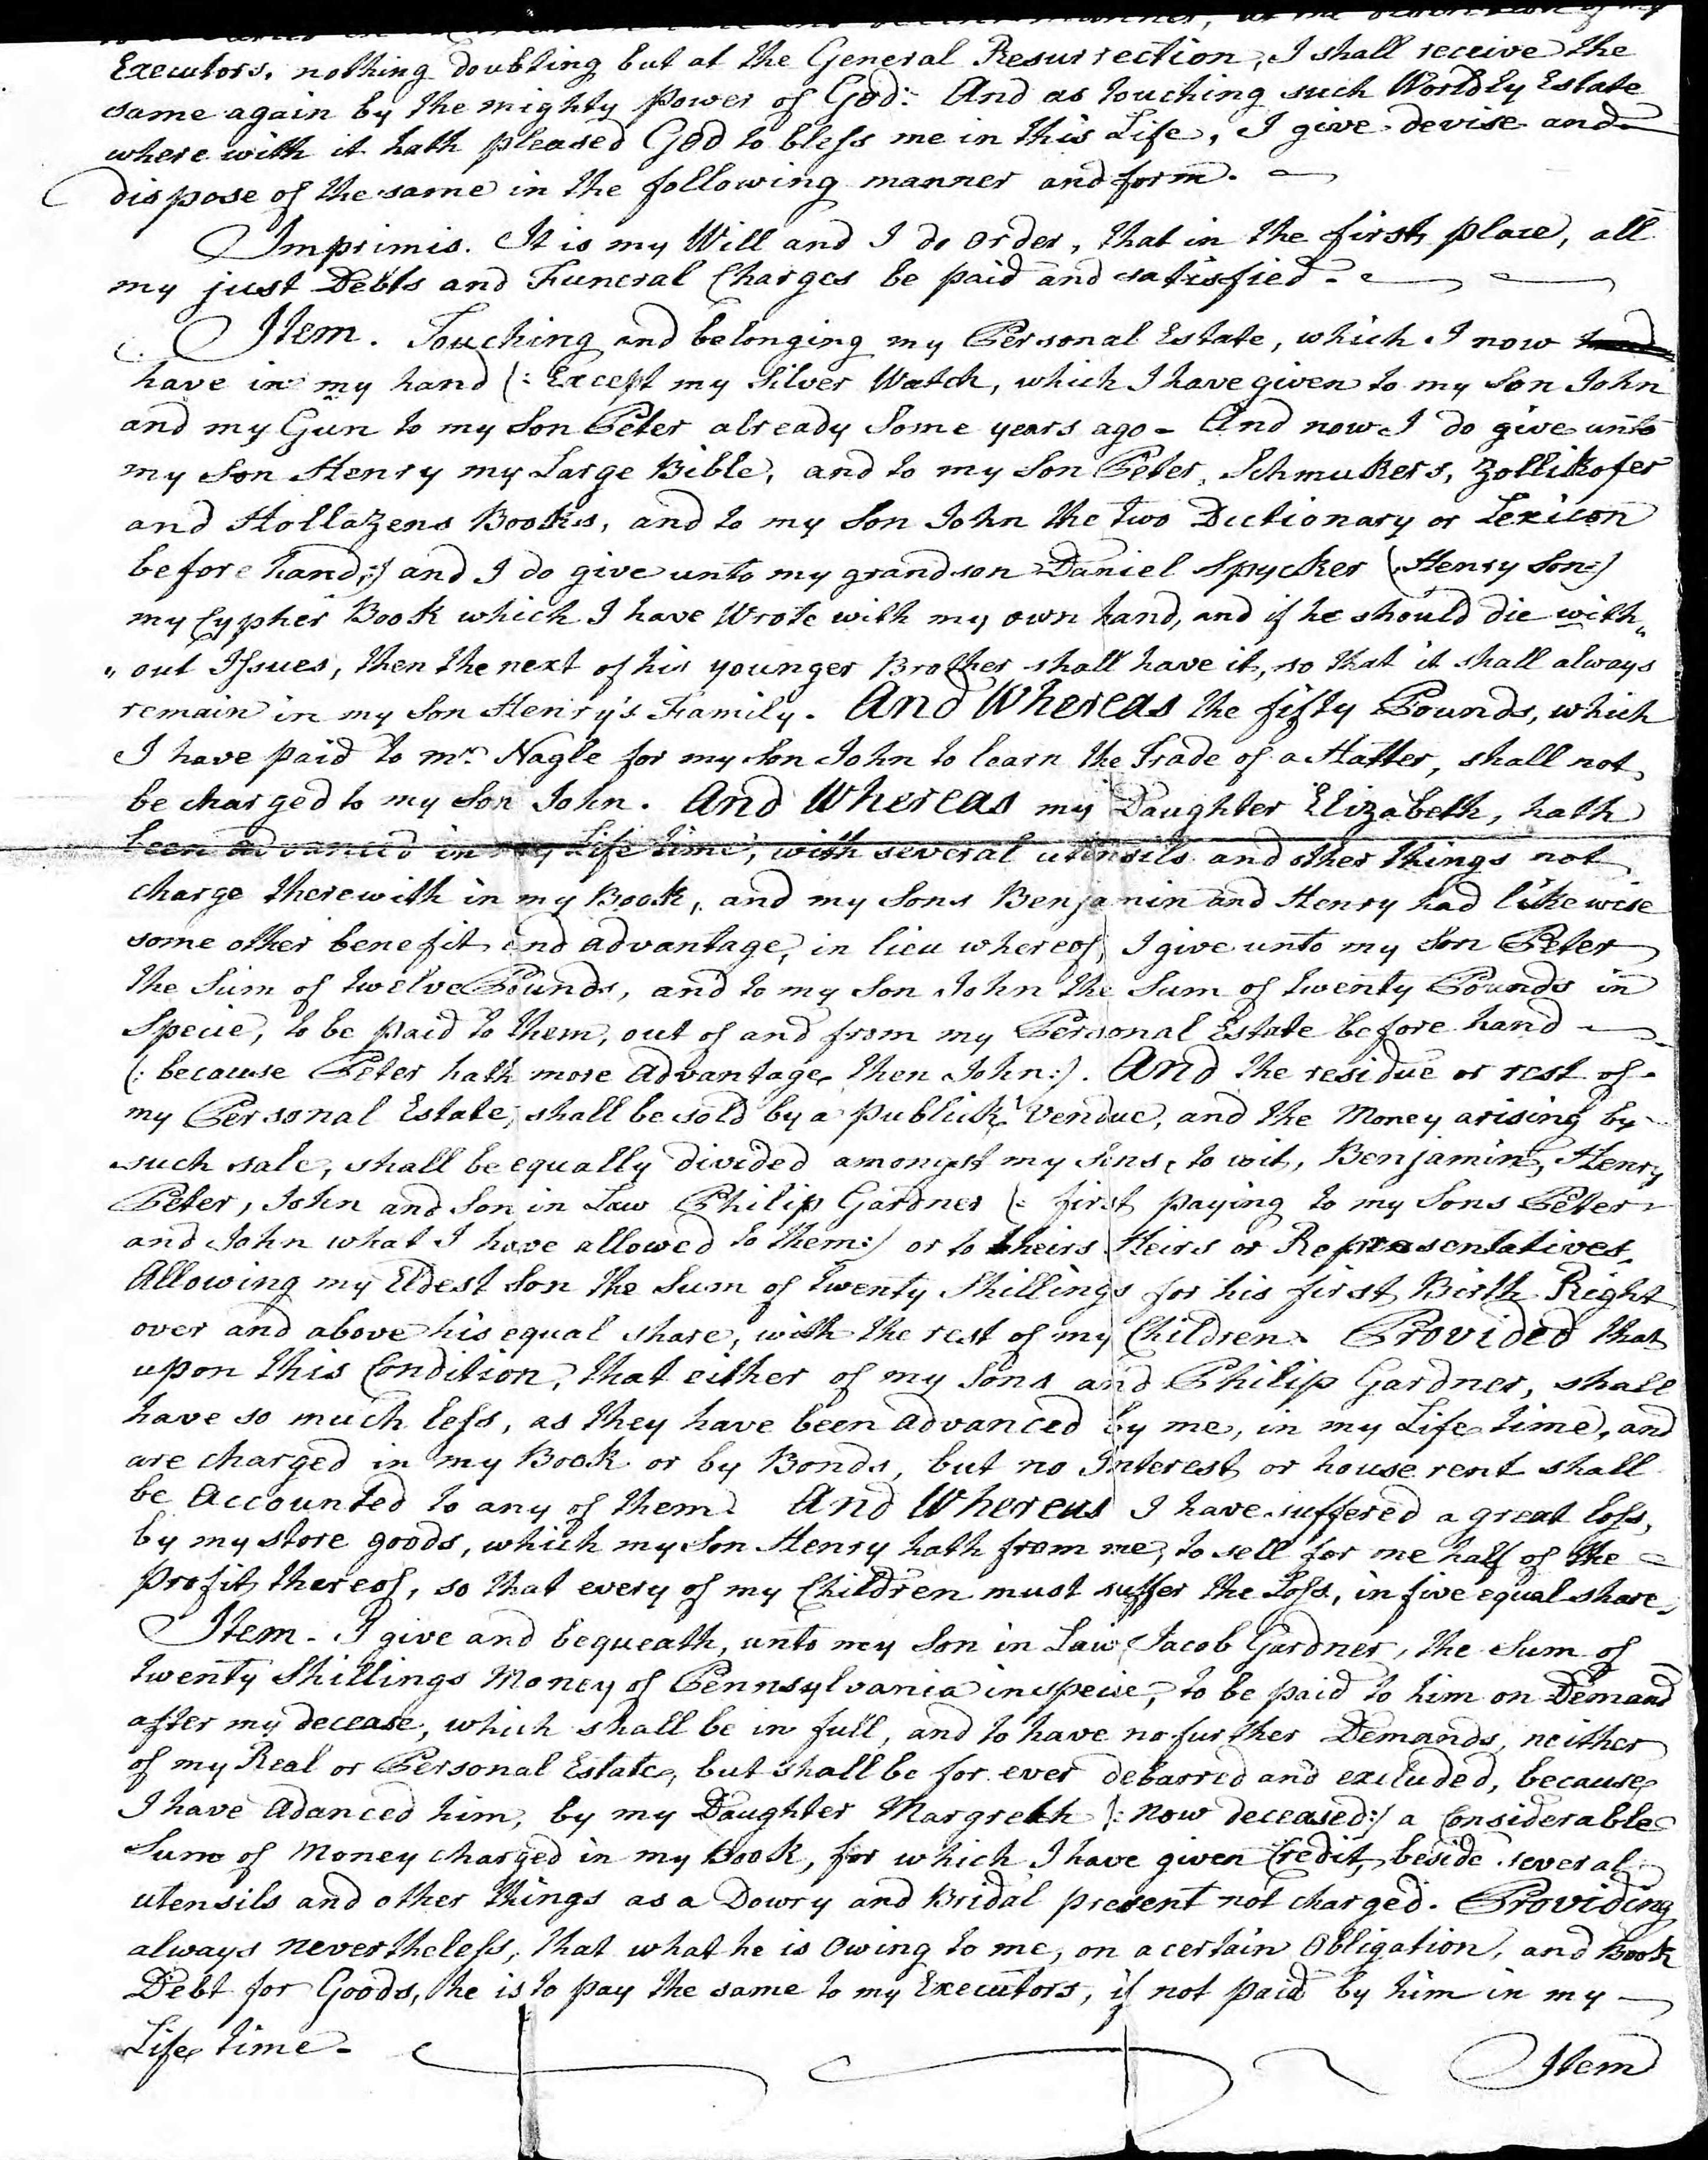 Executors, nothing doubting but at the General Resurrection, I shall receive the
same again by the mighty Power of God: And as touching such Worldly Estate
where with it hath pleased God to bless me in this Life, I give devise and
dispose of the same in the following manner and form.
Imprimis. It is my Will and I do order, that in the first place, all
my just Debts and Funeral Charges be paid and satisfied.
Item. Touching and belonging my Personal Estate, which I now
have in my hand (: Except my Silver Watch, which I have given to my Son John
and my Gun to my Son Peter already Some years ago - And now I do give unto
my Son Henry my Large Bible, and to my Son Peter, Schmukers, Zollikofer
and Hollazens Books, and to my Son John the two Dictionary or Lexicon
before hand;:) and I do give unto my grandson Daniel Spycker (Henry Son:)
my Cypher Book which I have Wrote with my own hand, and if he should die with„
„out Issues, then the next of his younger Brother shall have it, so that it shall always
remain in my Son Henry's Family. And Whereas the fifty Pounds, which
I have paid to Mr. Nagle for my Son John to learn the Trade of a Hatter, shall not
be charged to my Son John. And Whereas my Daughter Elizabeth, hath
been advanced in my Life time, with several utensils and other things not
charge therewith in my Book, and my Sons Benjamin and Henry had likewise
some other benefit and advantage, in lieu whereof, I give unto my Son Peter
the Sum of twelve Pounds, and to my Son John the Sum of twenty Pounds in
Specie, to be paid to them, out of and from my Personal Estate before hand
(: because Peter hath more advantage then John:). And the residue or rest of
my Personal Estate, shall be sold by a publick Vendue, and the Money arising by
such sale, shall be equally divided amongst my Sons, to wit, Benjamin, Henry
Peter, John and Son in Law Philip Gardner (: first paying to my Sons Peter
and John what I have allowed to them:) or to theirs Heirs or Representatives,
Allowing my Eldest Son the Sum of twenty Shillings for his first Birth Right
over and above his equal share, with the rest of my Children. Provided that
upon this Condition, that either of my Sons and Philip Gardner, shall
have so much less, as they have been advanced by me, in my Life time, and
are charged in my Book or by Bonds, but no Interest or house rent shall
be Accounted to any of them. And Whereas I have suffered a great loss,
by my store goods, which my Son Henry hath from me, to sell for me half of the
profit thereof, so that every of my Children must suffer the Loss, in five equal share,
Item. I give and bequeath, unto my Son in Law Jacob Gardner, the Sum of
twenty Shillings Money of Pennsylvania in specie, to be paid to him on Demand
after my decease, which shall be in full, and to have no further Demands, neither
of my Real or Personal Estate, but shall be for ever debarred and excluded, because
I have adanced him, by my Daughter Margreth (: now deceased:) a Considerable
Sum of Money charged in my Book, for which I have given Credit, beside several
utensils and other things as a Dowry and Bridal present not charged. Providing
always nevertheless, that what he is Owing to me, on a certain Obligation, and Book
Debt for Goods, he is to pay the same to my Executors, if not paid by him in my
Life time.
Item